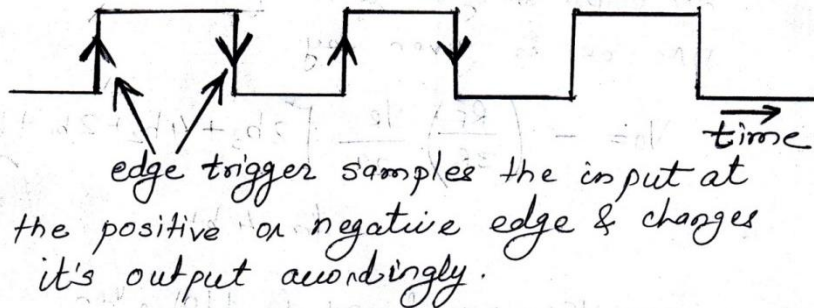 time
edge trigger samples the input at
the positive or negative edge & changes
it's output accordingly.